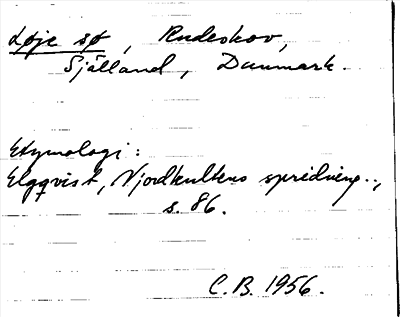 Løje sø, Rudeskov,
Själland, Danmark.
Etymologi:
Elgqvist, Njordkultens spridning..,
s. 86.
C.B. 1956.